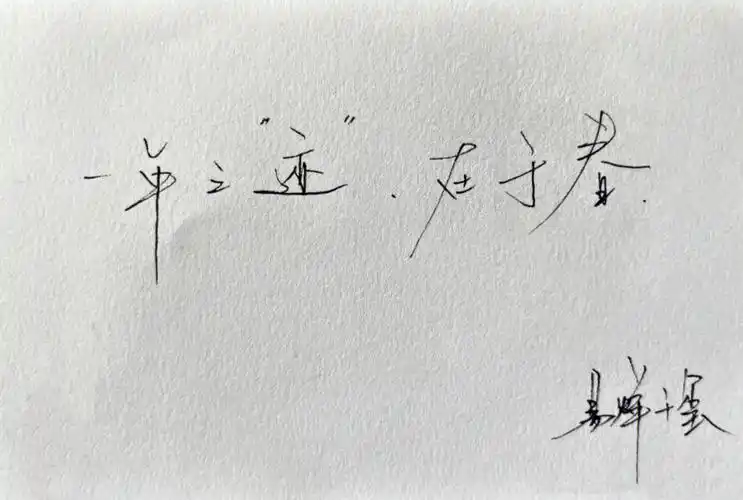 一年之“迹”.在于春.
易烊千玺